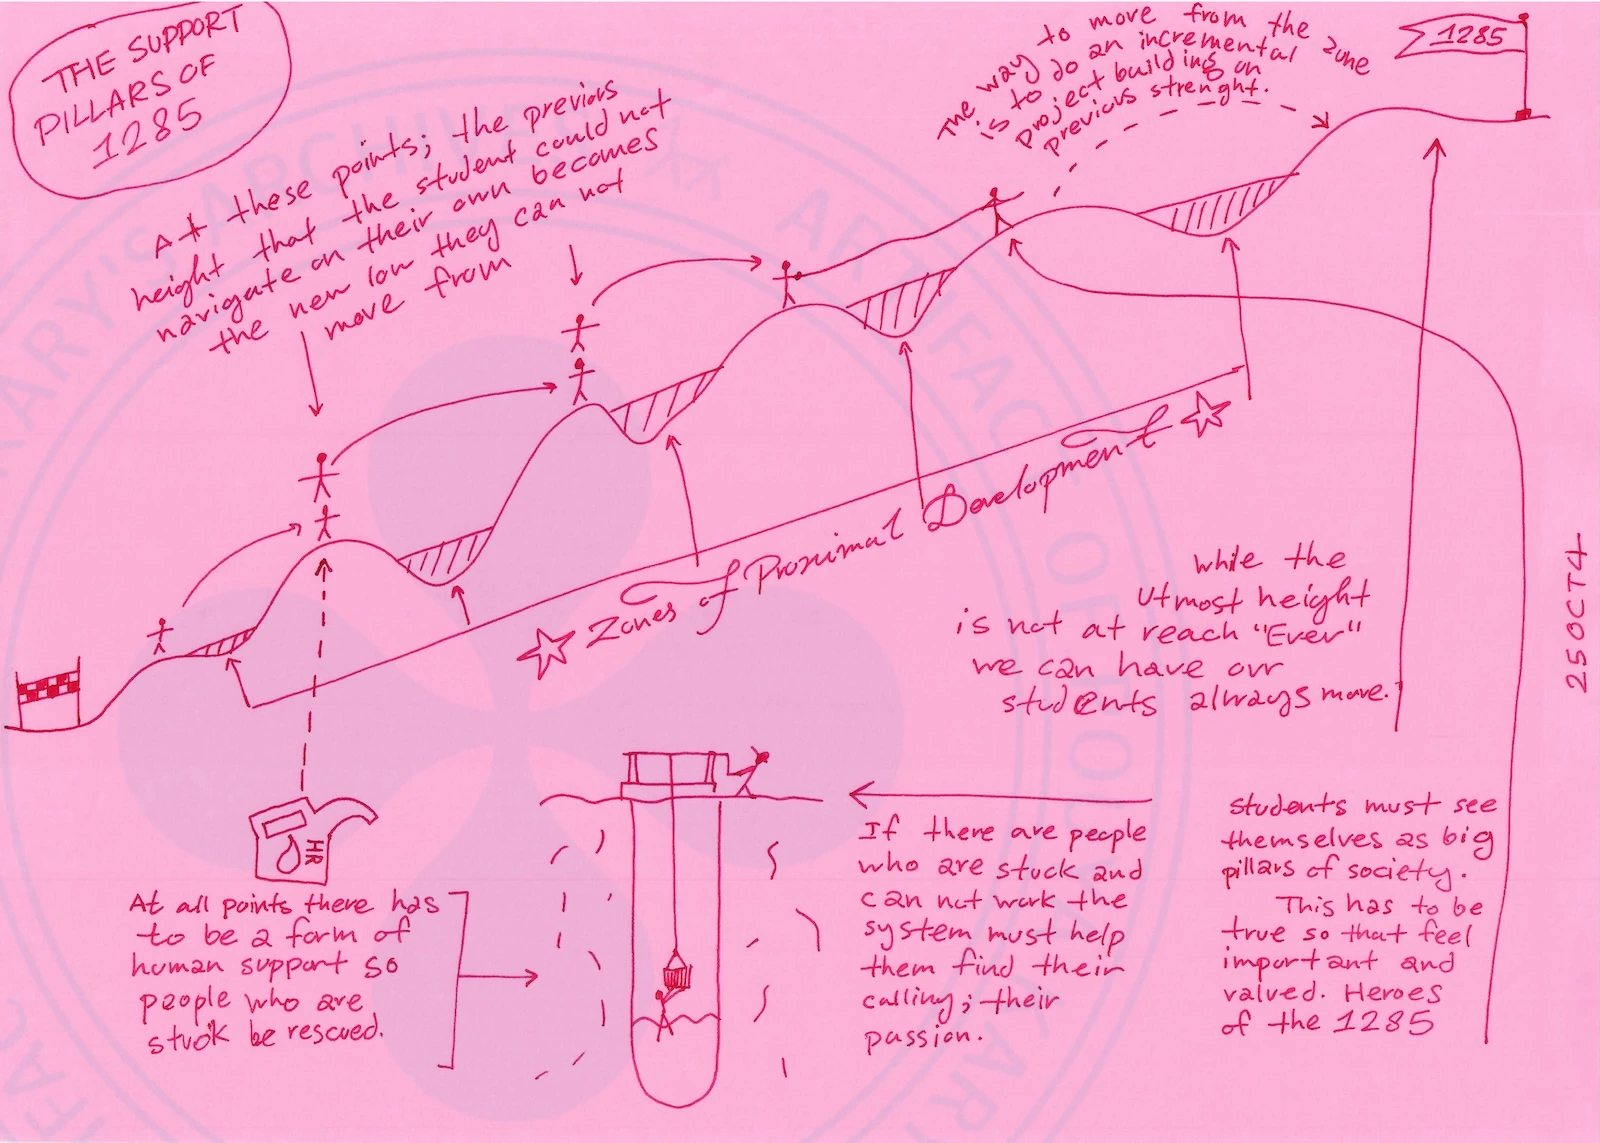 THE SUPPORT
PILLARS OF
1285
At these points; the previous
height that the student could not
navigate on their own becomes
the new low they can not
move from
The way to move from the zone
is to do an incremental
project building on
previous strenght.
1285
Zones of Proximal Development
While the
utmost height
is not at reach "Ever"
we can have our
students always move.
25OCT4
HR
At all points there has
to be a form of
human support so
people who are
stuck be rescued.
If there are people
who are stuck and
can not work the
system must help
them find their
calling; their
passion.
Students must see
themselves as big
pillars of society.
This has to be
true so that feel
important and
valued. Heroes
of the 1285
ARCHIVE
ARTIFACT OF